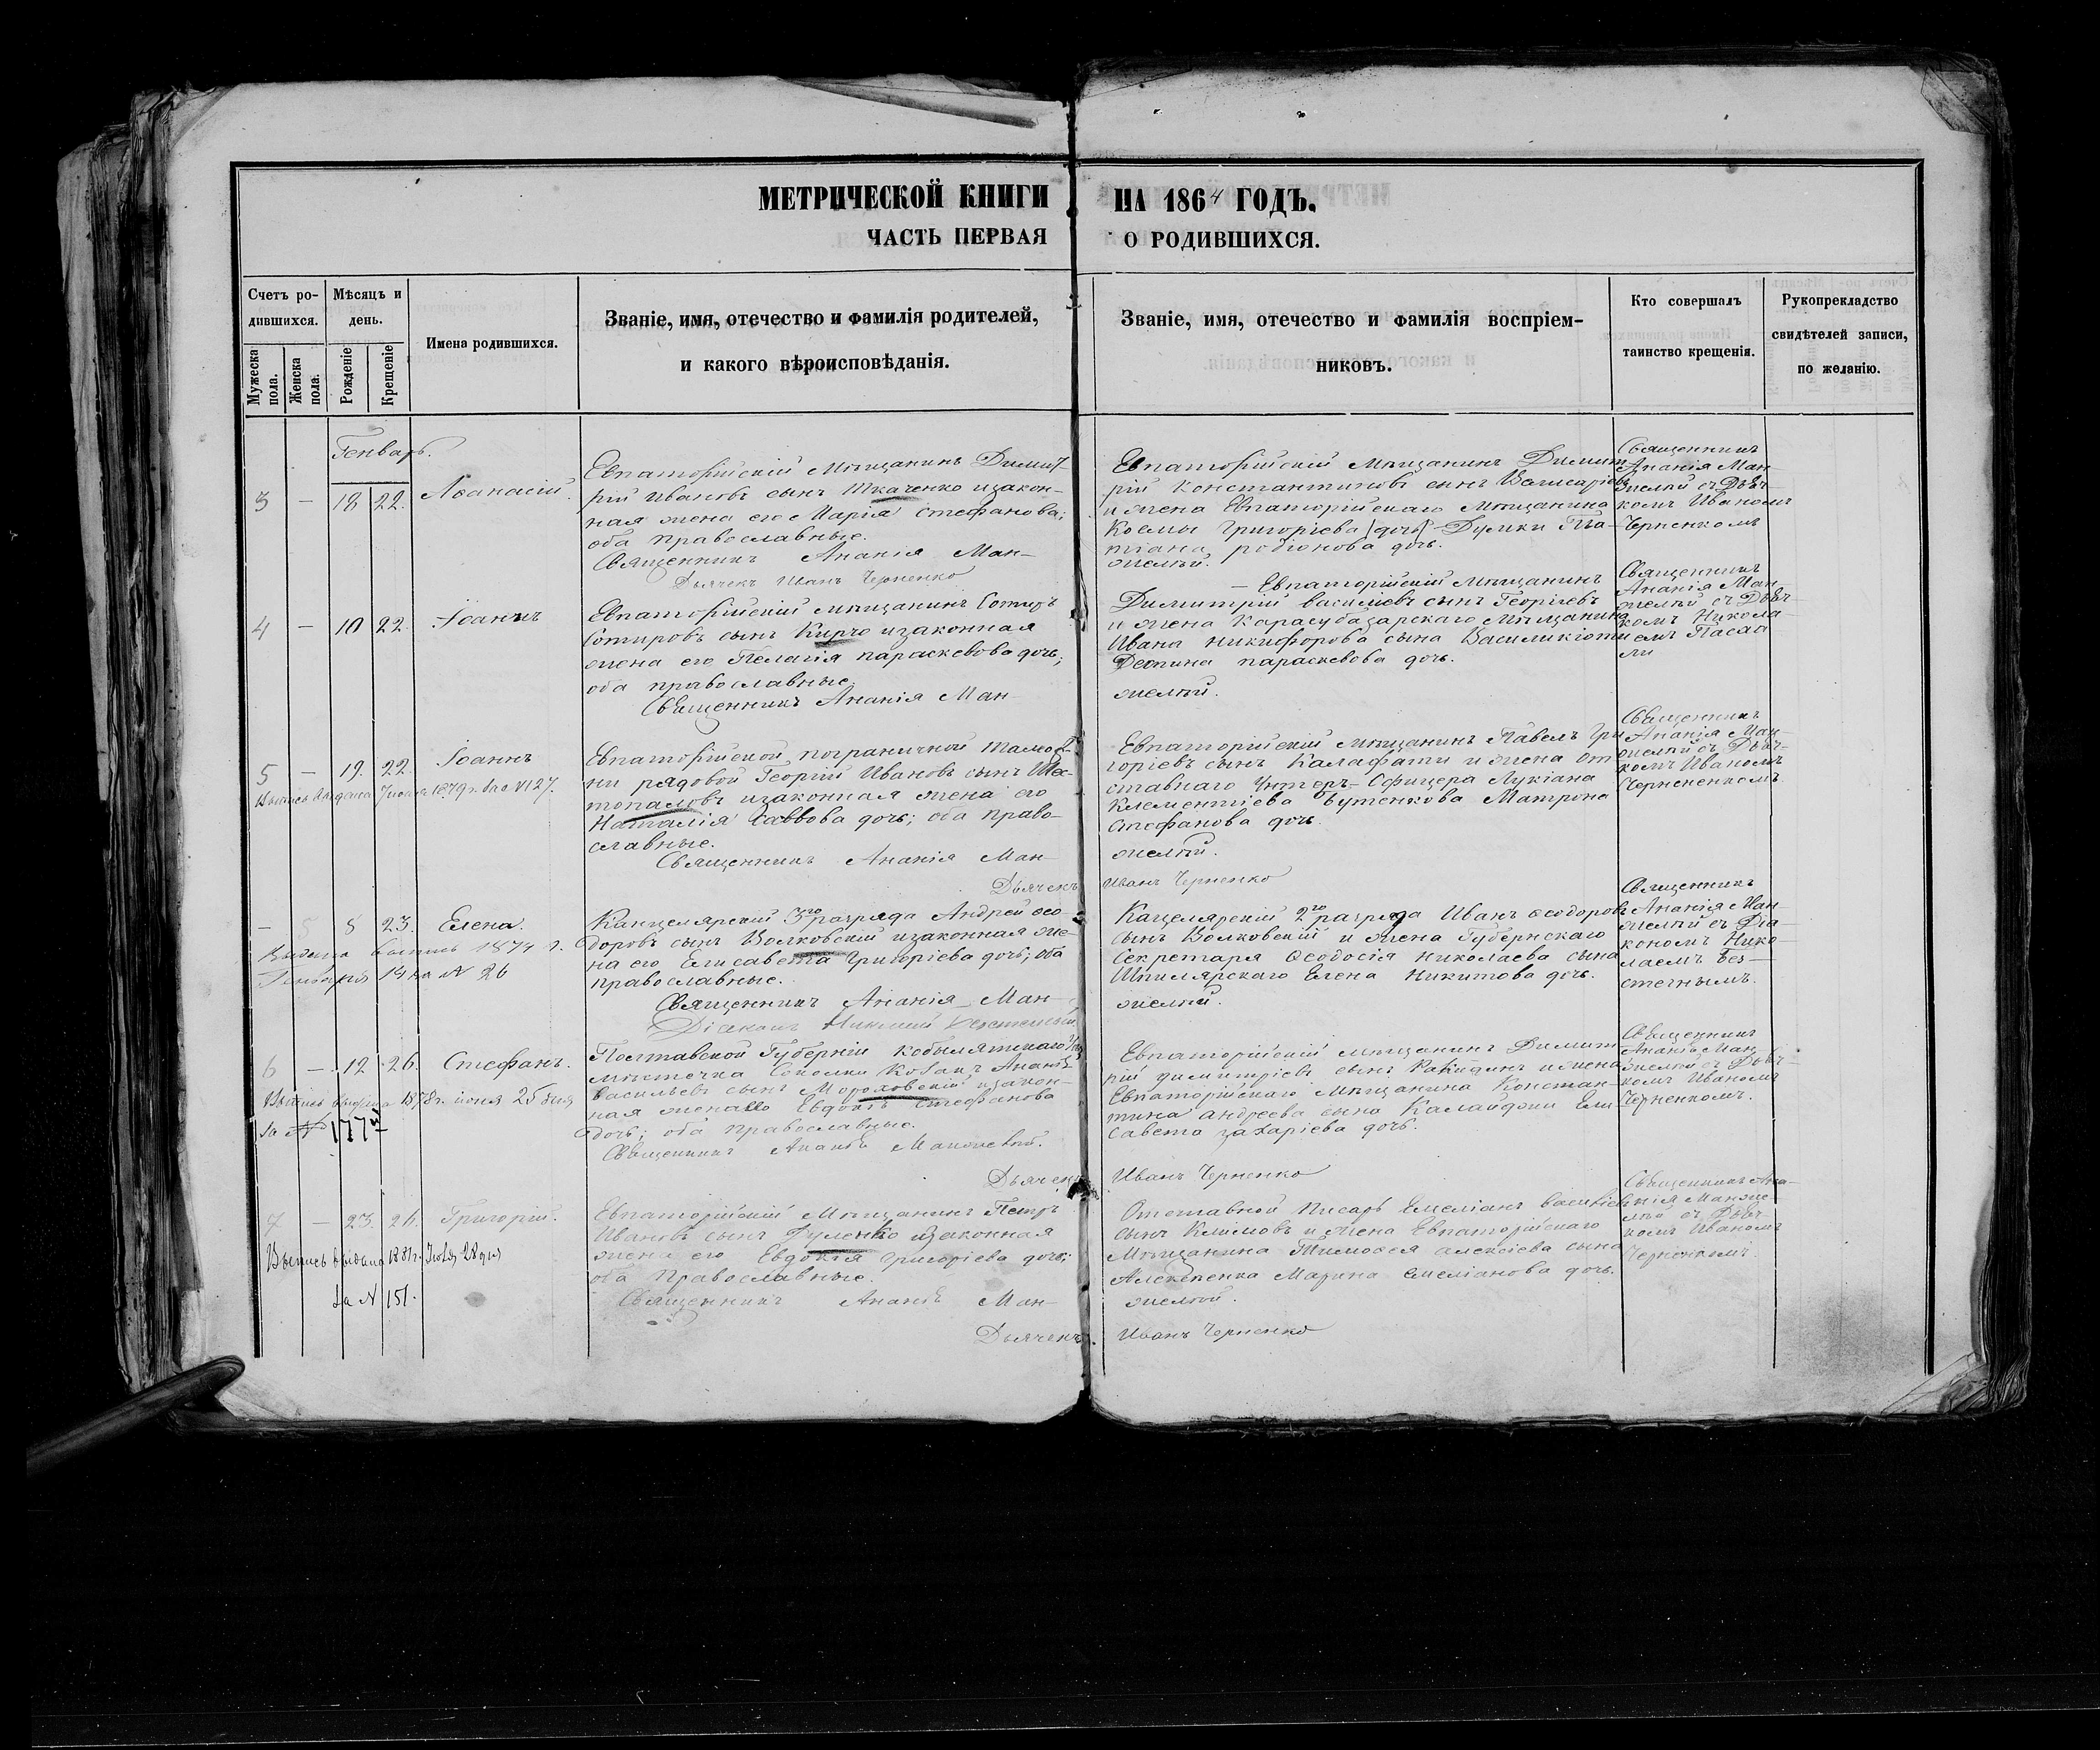 МЕТРИЧЕСКОЙ КНИГИ НА 1864 ГОДЪ.
ЧАСТЬ ПЕРВАЯ О РОДИВШИХСЯ.
Счетъ ро-
дившихся.
Мужеска пола.
Женска пола.
Мѣсяцъ и
день.
Рожденіе
Крещеніе
Имена родившихся.
Званіе, имя, отечество и фамилія родителей,
и какого вѣроисповѣданія.
Званіе, имя, отечество и фамилія воспріем-
никовъ.
Кто совершалъ
таинство крещенія.
Рукоприкладство
свидѣтелей записи,
по желанію.
Генварь.
3 — 18 22. Аѳанасій.
Евпаторійскій Мѣщанинъ Димит-
рій Ивановъ сынъ Ткаченко изакон-
ная жена его Марія Стефанова;
оба православные.
Священникъ Ананія Ман-
Дьячекъ Иванъ Черненко
Евпаторійскій Мѣщанинъ Димит
рій Константиновъ сынъ
и жена Евпаторійскаго Мѣщанина
Космы Григоріева
родіонова дочь.
желѣй.
Священникъ
Ананія Ман-
желѣй съ Дьяч-
комъ Иваномъ
Черненкомъ
4 — 10 22. Іоаннъ
Евпаторійскій мѣщанинъ Сотиръ
Сотировъ сынъ Кирчо изаконная
жена его Пелагія параскевова дочь;
оба православные.
Священникъ Ананія Ман-
— Евпаторійскій мѣщанинъ
Димитрій Василіевъ сынъ Георгіевъ
и жена Карасубазарскаго Мѣщанина
Ивана Никифорова сына
Деспина параскевова дочь.
желѣй.
Священникъ
Ананія Ман-
желѣй съ Дьяч-
комъ Никола-
емъ
5 — 19. 22. Іоаннъ
Выпись выдана 1879 г. за № 127.
Евпаторійской пограничной Тамож-
ни рядовой Георгій Ивановъ сынъ Шес-
топаловъ изаконная жена его
Наталія Саввова дочь; оба право-
славные.
Священникъ Ананія Ман-
Дьячекъ
Евпаторійскій мѣщанинъ Павелъ Гри
горіевъ сынъ Калафати и жена от
ставнаго Унтеръ-Офицера Лукіана
Клементіева Бутенкова Матрона
Стефанова дочь.
желѣй.
Иванъ Черненко
Священникъ
Ананія Ман-
желѣй съ Дьяч-
комъ Иваномъ
Черненкомъ
— 5 8 23. Елена.
Выдана выпись 1874 г.
14 на № 26
Канцелярскій 3го разряда Андрей Ѳео-
доровъ сынъ Волковскій изаконная же-
на его Елисавета Григоріева дочь; оба
православные.
Священникъ Ананія Ман-
Діаконъ Николай
Кацелярскій 2го разряда Иванъ Ѳеодоровъ
сынъ Волковскій и жена Губернскаго
Секретаря Ѳеодосія Николаева сына
Шпилярскаго Елена Никитова дочь.
желѣй.
Священникъ
Ананія Ман-
желѣй съ Діа-
кономъ Нико
лаемъ Без-
стечнымъ.
6 — 12 26. Стефанъ.
Выпись выдана 1878 г. іюня 25 дня
за № 177
Полтавской Губерніи Кобылятскаго
мѣстечка Соколки Козакъ Ананій
Василіевъ сынъ Мороховскій изакон-
ная жена его Евдокія Стефанова
дочь; оба православные.
Священникъ Ананія Манжелѣй.
Дьячекъ
Евпаторійскій мѣщанинъ Димит
рій димитріевъ сынъ и жена
Евпаторійскаго Мѣщанина Констан-
тина андреева сына Калайджи Ели
савета захаріева дочь.
Иванъ Черненко
Священникъ
Ананія Ман
желѣй съ Дьяч-
комъ Иваномъ
Черненкомъ.
7 — 23. 26. Григорій.
Выпись выдана 1881 г. Іюля 28 дня
За № 151.
Евпаторійскій Мѣщанинъ Петръ
Ивановъ сынъ Гуленко изаконная
жена его Евдокія Григоріева дочь;
оба Православные.
Священникъ Ананія Ман-
Дьячекъ
Отставной Писарь Емеліанъ Василіевъ
сынъ Климовъ и жена Евпаторійскаго
Мѣщанина Тимоѳея алексіева сына
Марина Емеліанова дочь.
желѣй.
Иванъ Черненко
Священникъ Ана-
нія Манже-
лѣй съ Дьяч-
комъ Иваномъ
Черненкомъ.